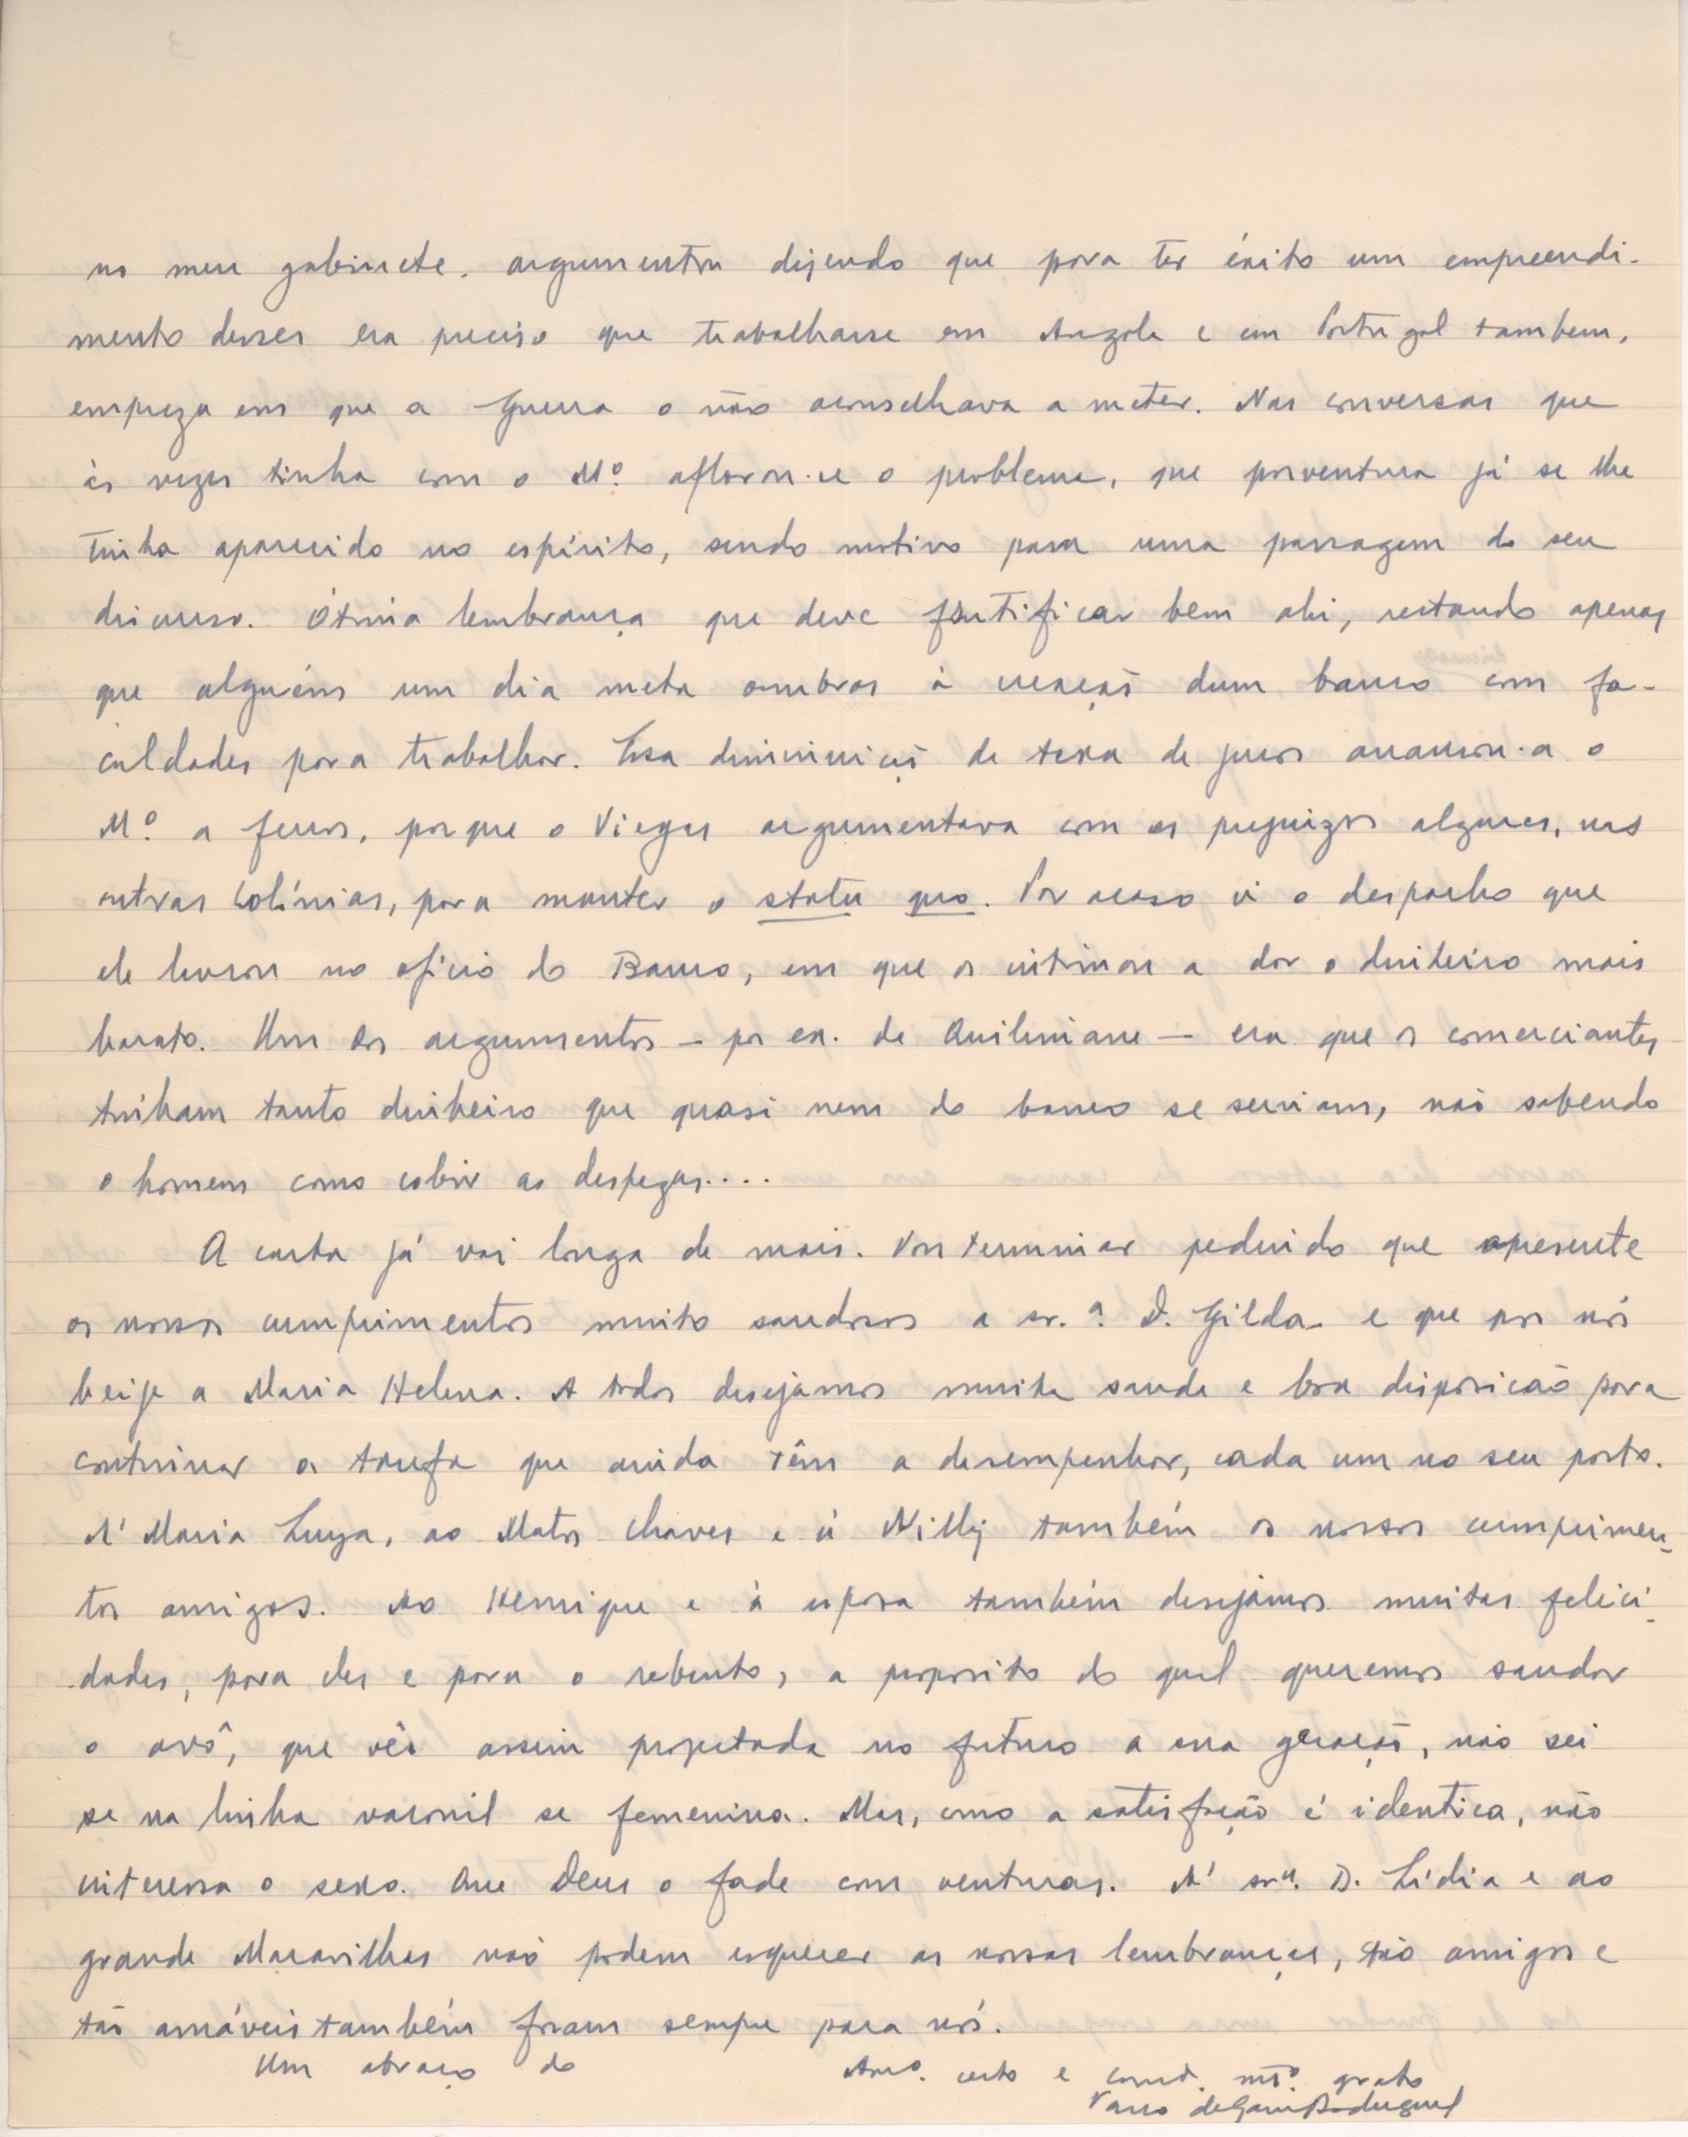 no meu gabinete. argumentou dizendo que para ter éxito um empreendi-
mento desses era preciso que trabalhasse em Angola e em Portugal tambem,
empreza em que a Guerra o não aconselhava a meter. Nas conversas que
às vezes tinha com o Mº. aflorou-se o problema, que porventura já se lhe
tinha aparecido no espírito, sendo motivo para uma passagem do seu
discurso. Ótima lembrança que deve frutificar bem ahi, restando apenas
que alguém um dia meta ombros à creação dum banco com fa-
culdades para trabalhar. Essa diminuição de taxa de juros arrancou-a o
Mº. a ferros, porque o Viegas argumentava com os prejuizos algures, nas
outras Colónias, para manter o statu quo. Por acaso vi o despacho que
ele lavrou no ofício do Banco, em que os intimou a dar o dinheiro mais
barato. Um dos argumentos — por ex. de Quilimane — era que os comerciantes
tinham tanto dinheiro que quasi nem do banco se serviam, não sabendo
o homem como cobrir as despezas....
A carta já vai longa de mais. Vou terminar pedindo que apresente
os nossos cumprimentos muito saudosos a sr.ª D. Gilda e que por nós
beije a Maria Helena. A todos desejamos muita saude e boa disposicão para
continuar a tarefa que ainda têm a desempenhar, cada um no seu posto.
A' Maria Luza, ao Matos Chaves e à Nilly também os nossos cumprimen-
tos amigos. Ao Henrique e à esposa também desejamos muitas felici-
dades, para eles e para o rebento, a proposito do qual queremos saudar
o avô, que vês assim projectada no futuro a sua geração, não sei
se na linha varonil se femenina. Mas, como a satisfação é identica, não
interessa o sexo. Que Deus o fade com venturas. A' srª. D. Lídia e ao
grande Maravilhas não podem esquecer as nossas lembranças, tão amigos e
tão amáveis também foram sempre para nós.
Um abraço do
Amº. certo e consid. mtº. grato
Vasco de Gama Rodrigues